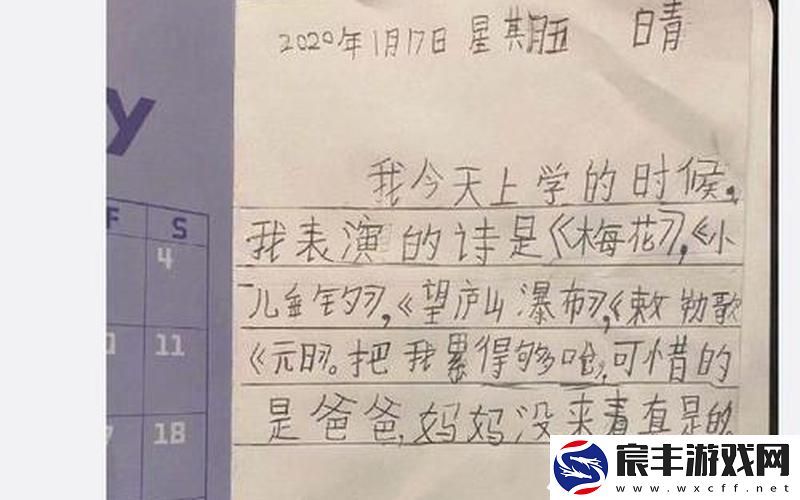 2020年1月17日 星期五 晴
我今天上学的时候.
我表演的诗是《梅花》,《小
儿垂钓》,《望庐山瀑布》,《敕勒歌
《元日》。把我累得够呛,可惜的
是爸爸,妈妈没来看真是的
y
F S
4
11
18
宸丰游戏网
www.wxcff.net